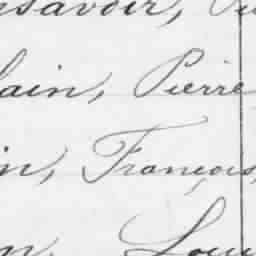 savoir,
lain, Pierre
in, François,
n, Lou